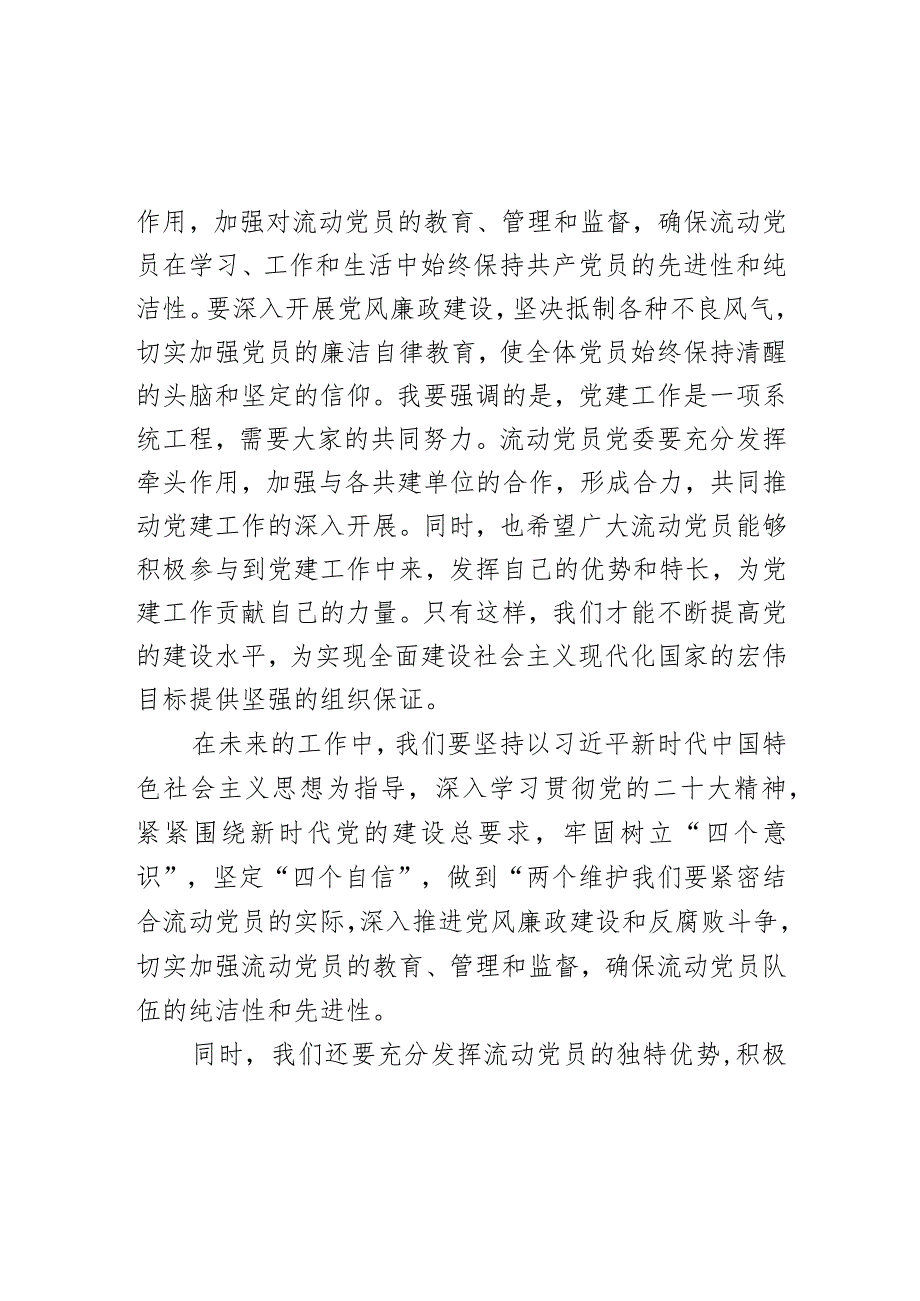 作用，加强对流动党员的教育、管理和监督，确保流动党
员在学习、工作和生活中始终保持共产党员的先进性和纯
洁性。要深入开展党风廉政建设，坚决抵制各种不良风气，
切实加强党员的廉洁自律教育，使全体党员始终保持清醒
的头脑和坚定的信仰。我要强调的是，党建工作是一项系
统工程，需要大家的共同努力。流动党员党委要充分发挥
牵头作用，加强与各共建单位的合作，形成合力，共同推
动党建工作的深入开展。同时，也希望广大流动党员能够
积极参与到党建工作中来，发挥自己的优势和特长，为党
建工作贡献自己的力量。只有这样，我们才能不断提高党
的建设水平，为实现全面建设社会主义现代化国家的宏伟
目标提供坚强的组织保证。
在未来的工作中，我们要坚持以习近平新时代中国特
色社会主义思想为指导，深入学习贯彻党的二十大精神，
紧紧围绕新时代党的建设总要求，牢固树立“四个意
识”，坚定“四个自信”，做到“两个维护我们要紧密结
合流动党员的实际,深入推进党风廉政建设和反腐败斗争，
切实加强流动党员的教育、管理和监督，确保流动党员队
伍的纯洁性和先进性。
同时，我们还要充分发挥流动党员的独特优势,积极